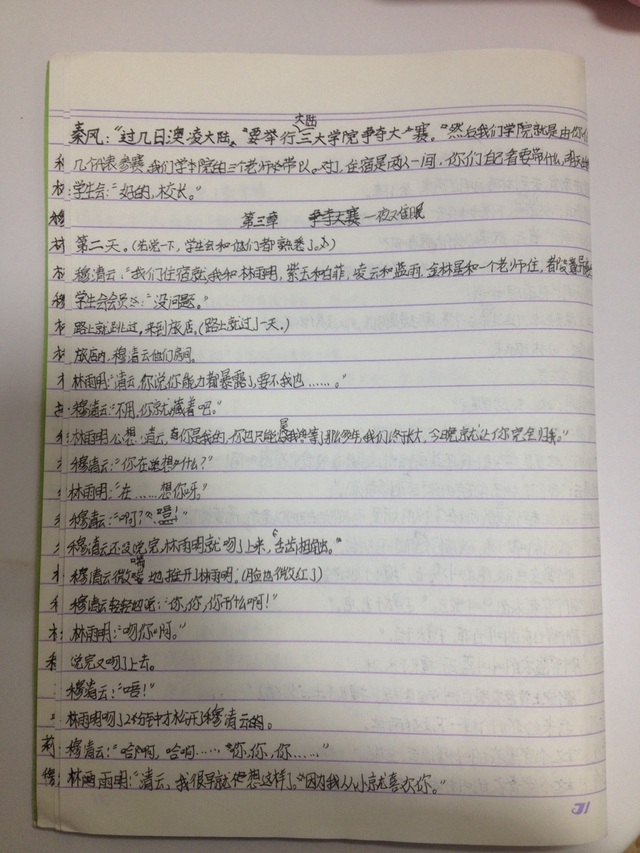 大陆
秦风：“过几日澳凌大陆。“要举行三大学院争夺大赛。”然后我们学院就是由你们
几个代表参赛，我们学院的三个老师带队。对了，住宿是两人一间，你们自己看要带什么，明天
学生会：“好的，校长。”
第三章 争夺大赛 一夜又催眠
第二天。(先说一下，学生会和他们都熟悉了。)
穆清云：“我们住宿就，我和林雨明，紫玉和柏菲，凌云和蓝雨，金林星和一个老师住，都没意见
学生会会员：“没问题。”
路上就跳过，来到旅店，(路上就过了一天。)
旅店内，穆清云他们房间。
林雨明：“清云，你说你能力都暴露了，要不我也……。”
穆清云：“不用，你就藏着吧。”
林雨明心想：清云，你是我的，你也只能是我的，等了那么多年，我们终于长大，今晚就让你完全归我。”
穆清云：“你在想什么？”
林雨明：“在……想你呀。”
穆清云：“啊？唔！”
穆清云还没说完，林雨明就吻了上来，舌齿相触。
喘
穆清云微 地推开了林雨明。(脸也微红了)
穆清云轻轻地说：“你，你，你干什么啊！”
林雨明：“吻你啊。”
说完又吻了上去。
穆清云：“唔！”
林雨明吻了2秒钟才松开了穆清云的。
穆清云：“哈啊，哈啊……”“你，你，你……”
林雨明：“清云，我很早就想这样了。”“因为我从小就喜欢你。”
31